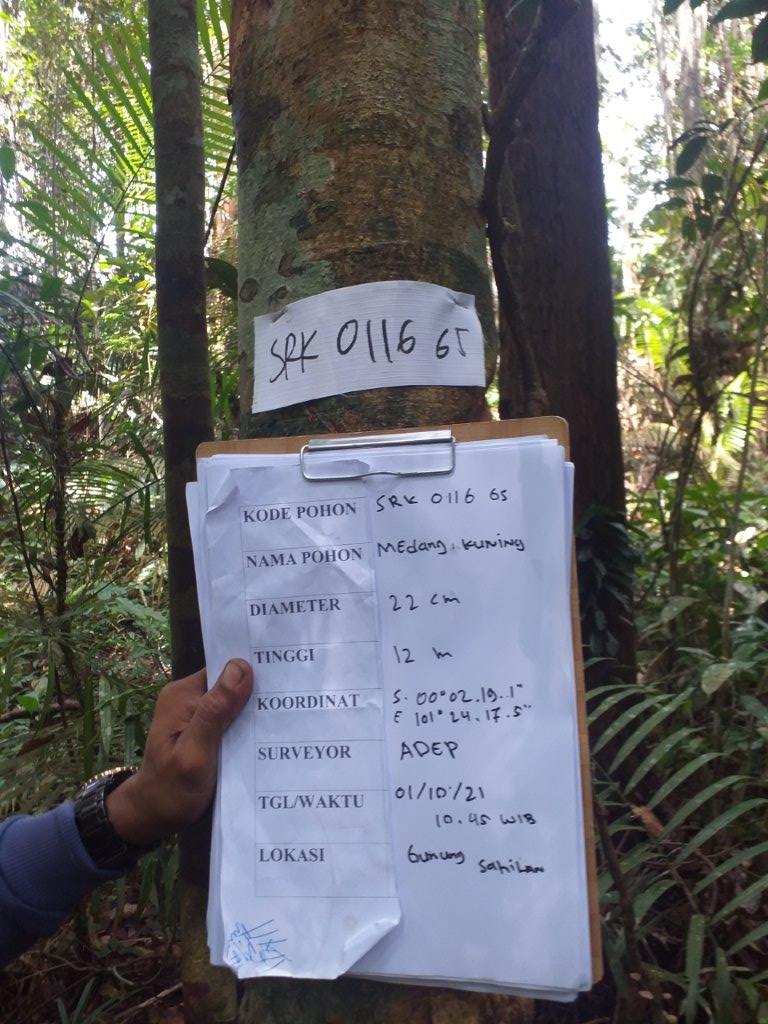 SRK 0116 65
KODE POHON SRK 0116 65
NAMA POHON MEdang. KUNING
DIAMETER 22 cm
TINGGI 12 m
KOORDINAT S. 00° 02. 19. 1"
E 101° 24. 17. 5"
SURVEYOR ADEP
TGL/WAKTU 01/10/21
10.45 WIB
LOKASI Gunung Sahilan